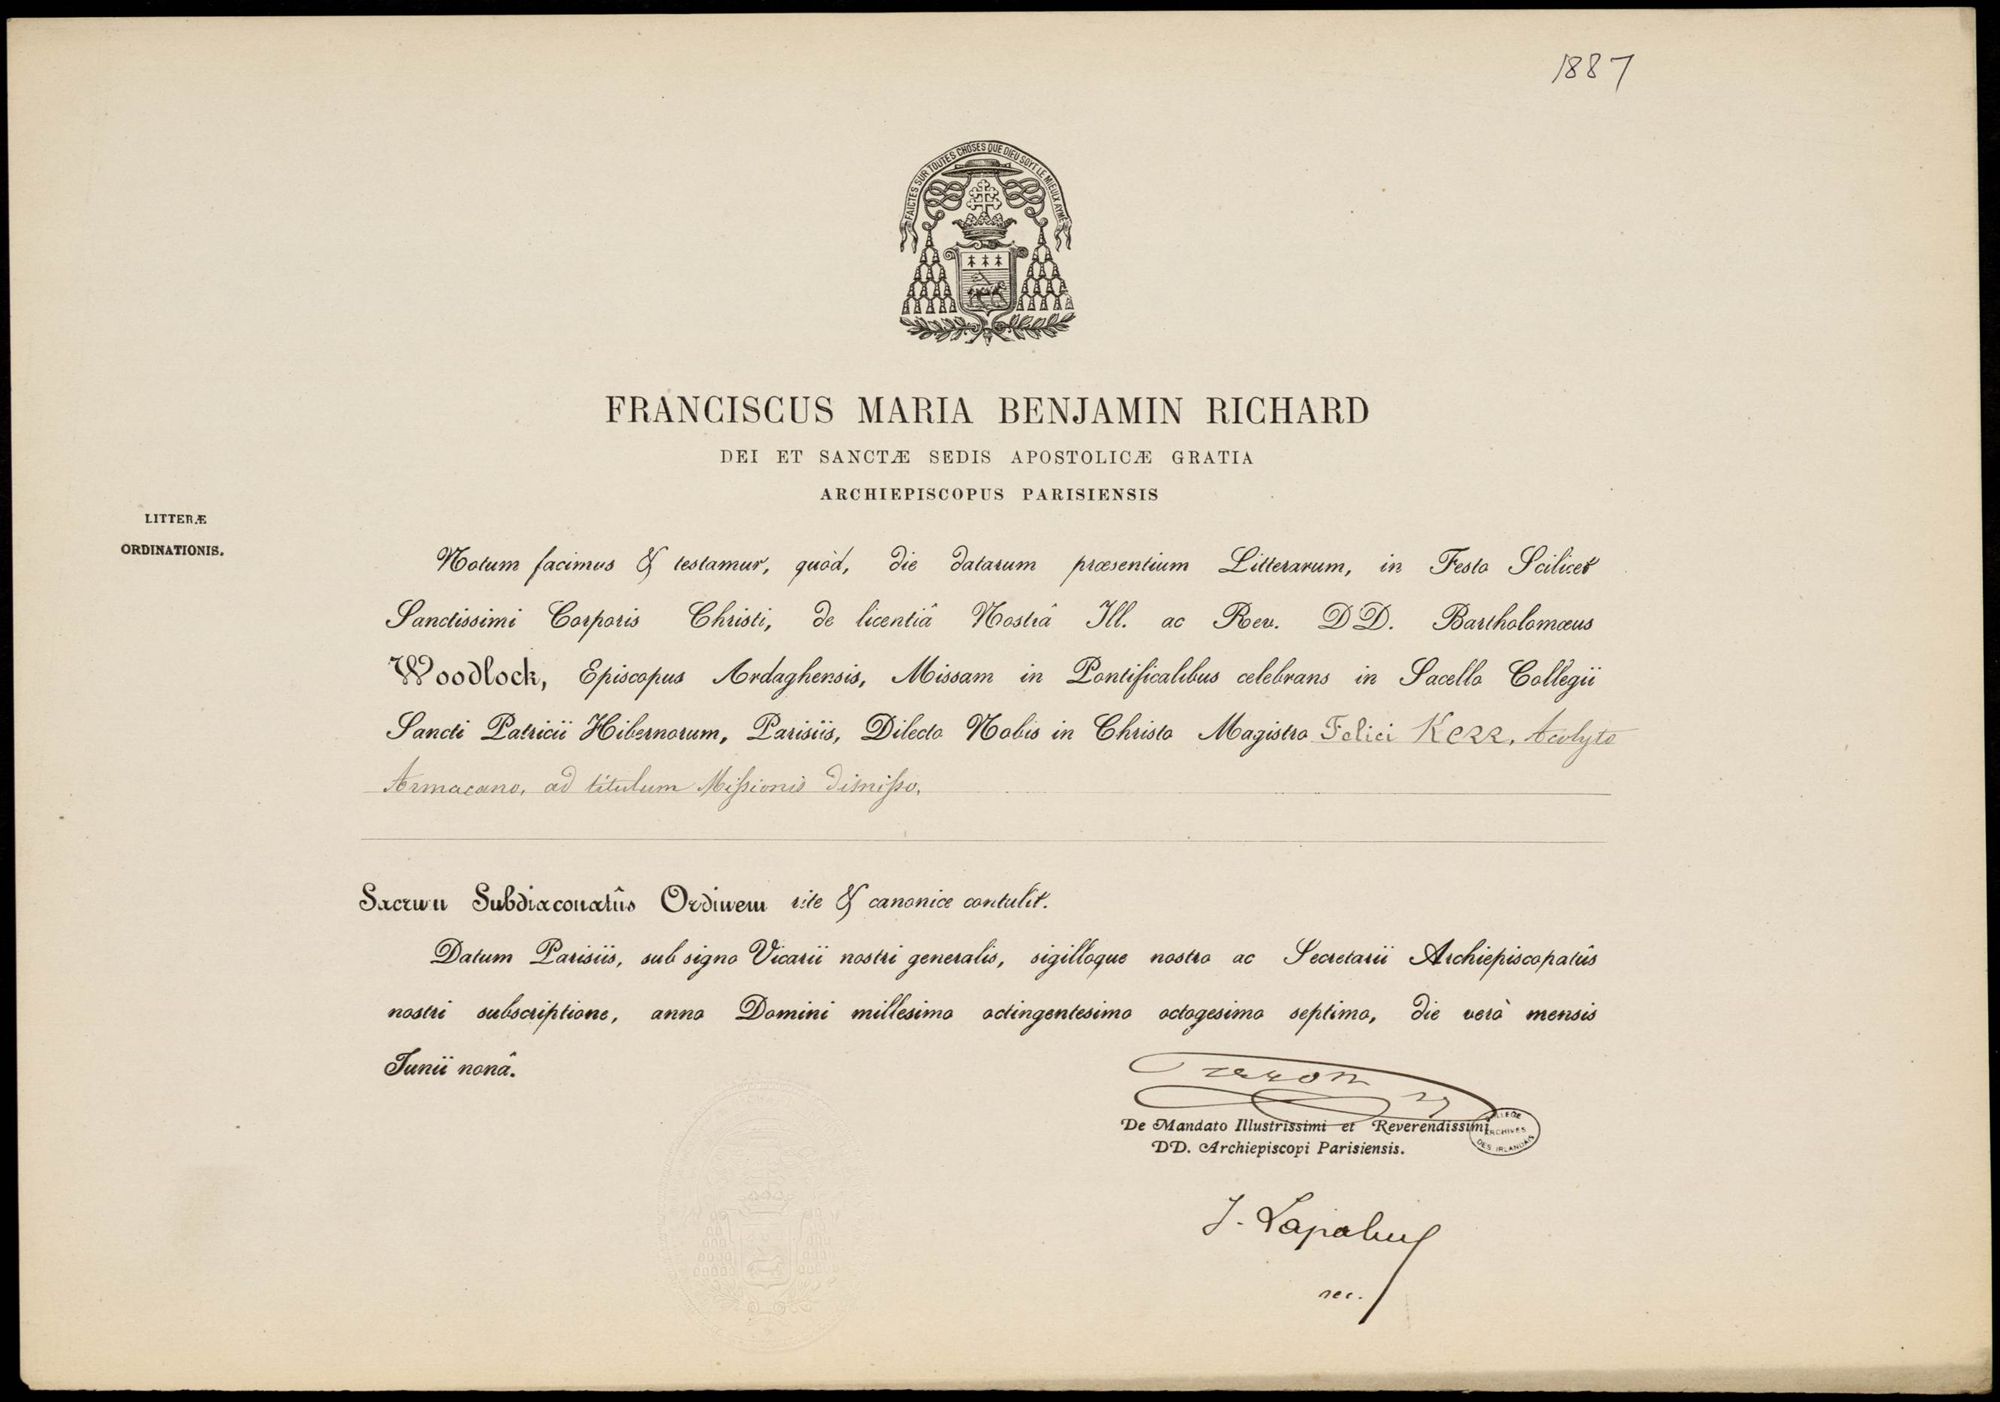 1887
FAICTES SUR TOUTES CHOSES QUE DIEU SOYT LE MIEULX AYMÉ
FRANCISCUS MARIA BENJAMIN RICHARD
DEI ET SANCTÆ SEDIS APOSTOLICÆ GRATIA
ARCHIEPISCOPUS PARISIENSIS
LITTERÆ
ORDINATIONIS.
Notum facimus & testamur, quòd, die datarum præsentium Litterarum, in Festo Scilicet
Sanctissimi Corporis Christi, de licentiâ Nostrâ Ill. ac Rev. DD. Bartholomæus
Woodlock, Episcopus Ardaghensis, Missam in Pontificalibus celebrans in Sacello Collegii
Sancti Patricii Hibernorum, Parisiis, Dilecto Nobis in Christo Magistro Felici Kerr, Acolyto
Armacano, ad titulum Missionis dismisso,
Sacrum Subdiaconatûs Ordinem rite & canonice contulit.
Datum Parisiis, sub signo Vicarii nostri generalis, sigilloque nostro ac Secretarii Archiepiscopatûs
nostri subscriptione, anno Domini millesimo octingentesimo octogesimo septimo, die verò mensis
Junii nonâ.
De Mandato Illustrissimi et Reverendissimi
DD. Archiepiscopi Parisiensis.
ARCHIVES
DES IRLANDAIS
J.
sec.